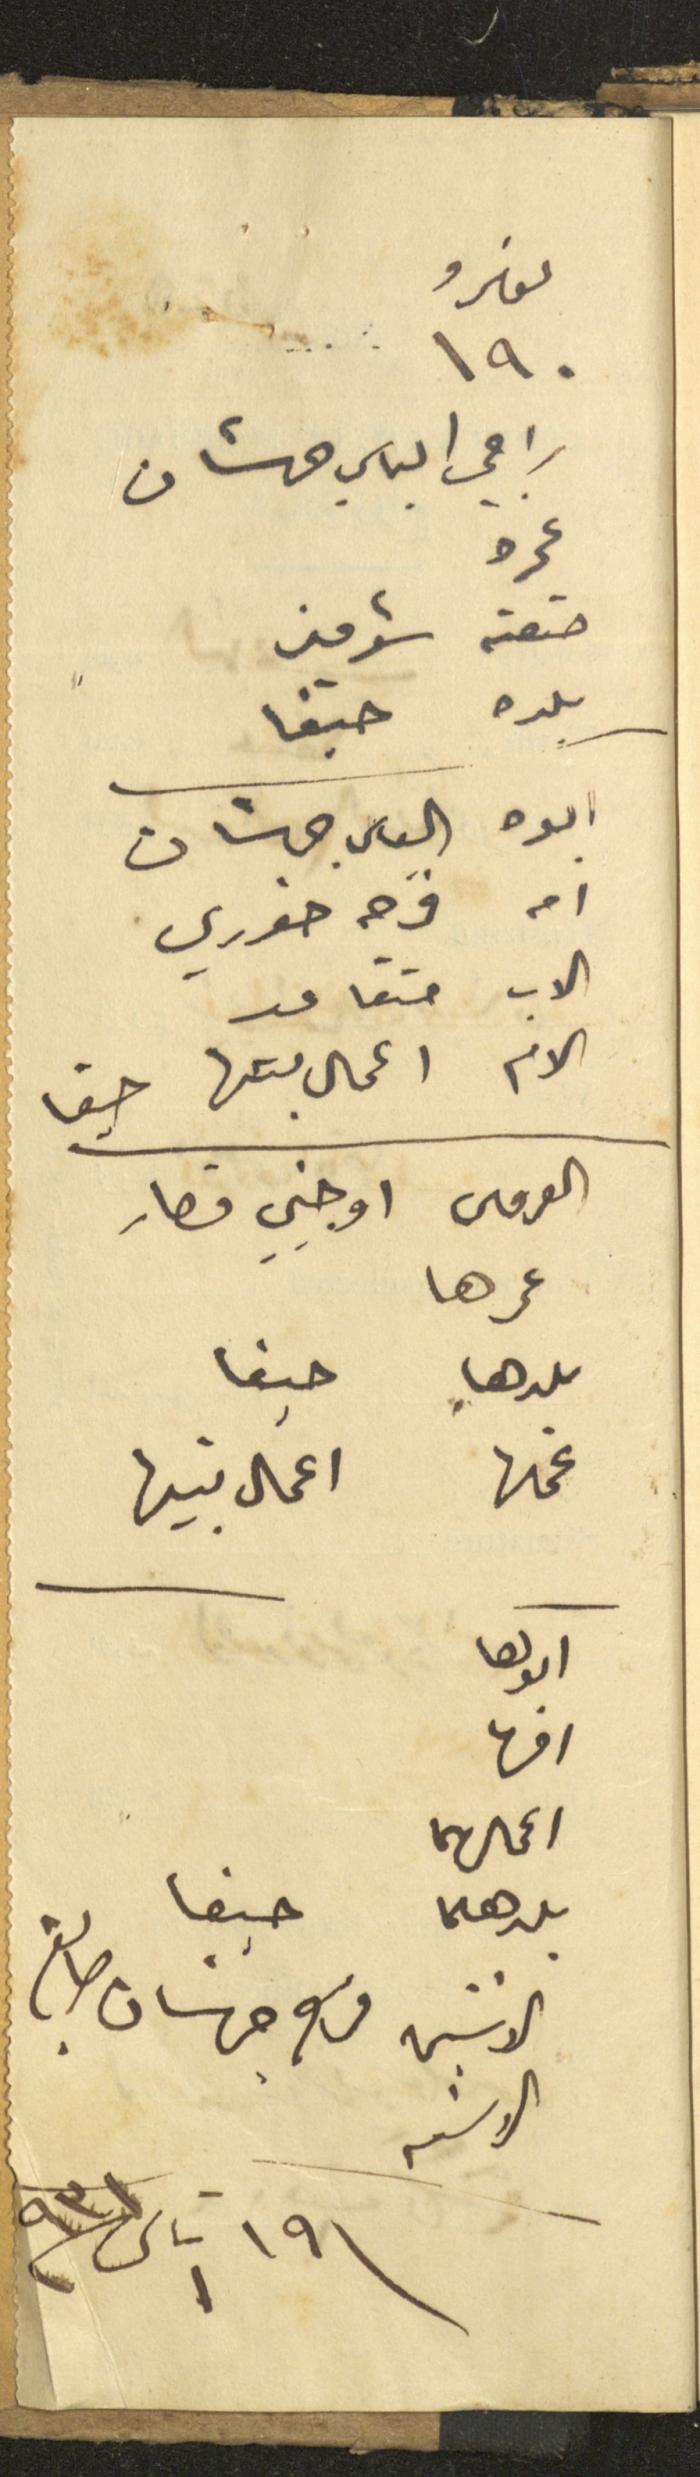 نومرو
١٩٠
راجي الياس جهشان
عمره
صنعته شوفير
بلده حيفا
ابوه الياس جهشان
امه فرحه خوري
الاب متقاعد
الام اعمال بيتها حيفا
العروس اوجيني قصار
عمرها
بلدها حيفا
عملها اعمال بيتها
ابوها
امها
اعمالهما
بلدهما حيفا
الاشبين جهشان
الاشبينه
١٩ ت١